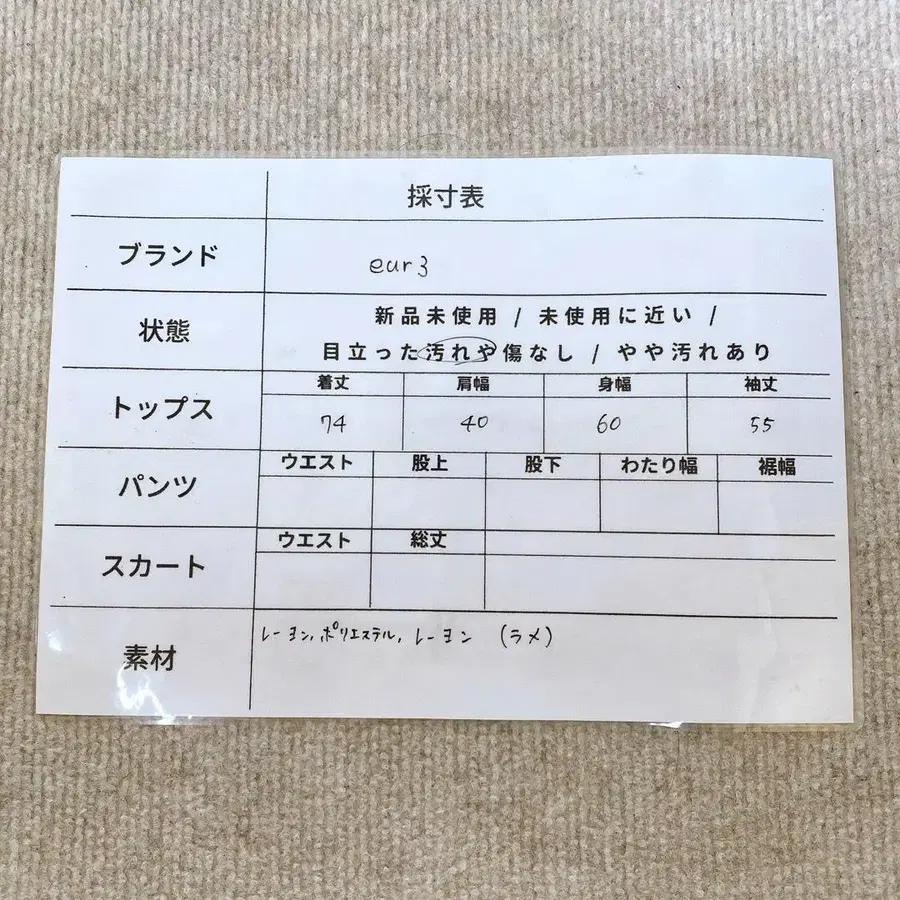 採寸表
ブランド eur3
状態 新品未使用 / 未使用に近い /
目立った汚れや傷なし / やや汚れあり
トップス 着丈 肩幅 身幅 袖丈
74 40 60 55
パンツ ウエスト 股上 股下 わたり幅 裾幅
スカート ウエスト 総丈
素材 レーヨン,ポリエステル,レーヨン (ラメ)